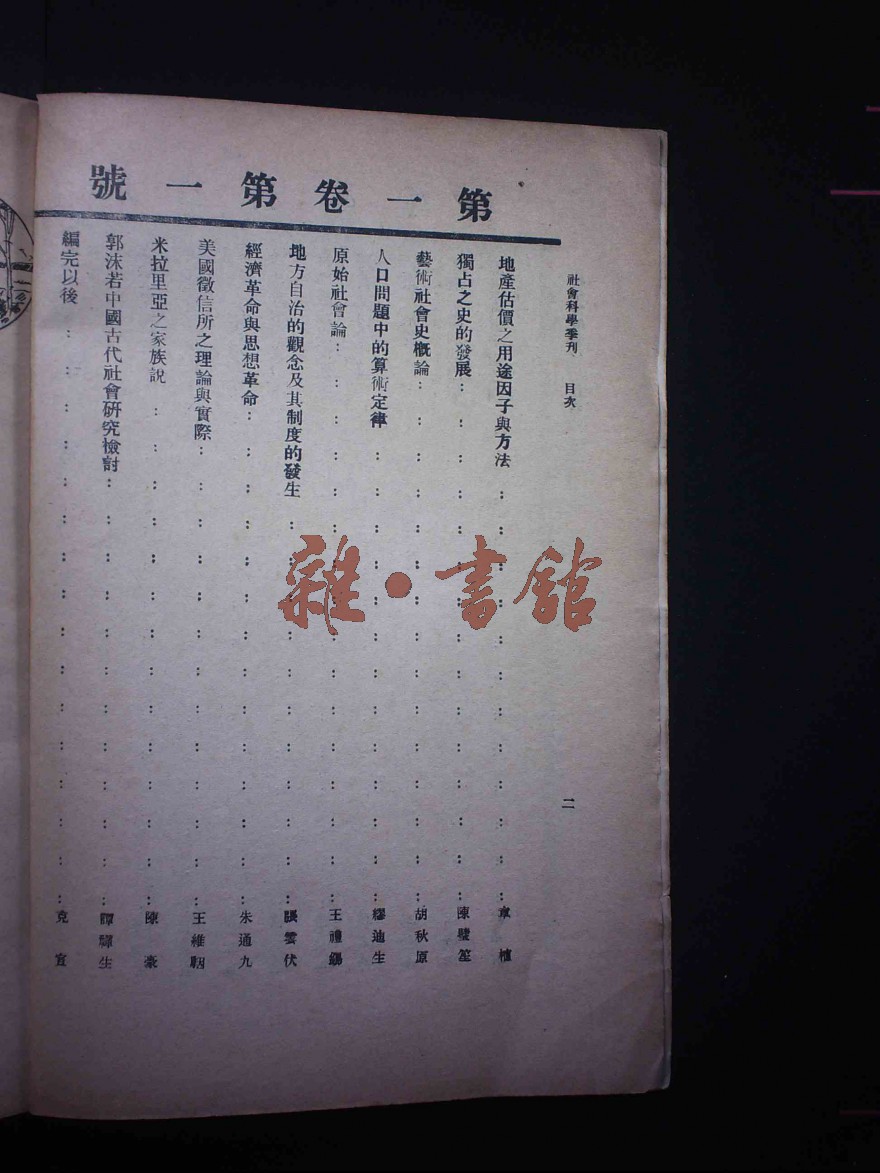 社會科學季刊 目次
二
第一卷第一號
地產估價之用途因子與方法：：：：：：：：：：章植
獨占之史的發展：：：：：：：：：：：：陳璧笙
藝術社會史概論：：：：：：：：：：：：胡秋原
人口問題中的算術定律：：：：：：：：：：：繆迪生
原始社會論：：：：：：：：：：：：：王禮錫
地方自治的觀念及其制度的發生：：：：：：：：：張雲伏
經濟革命與思想革命：：：：：：：：：：：：朱通九
美國徵信所之理論與實際：：：：：：：：：：：王維駰
米拉里亞之家族說：：：：：：：：：：：：陳豪
郭沫若中國古代社會研究檢討：：：：：：：：：：譚輝生
編完以後：：：：：：：：：：：：：：克宣
雜·書館